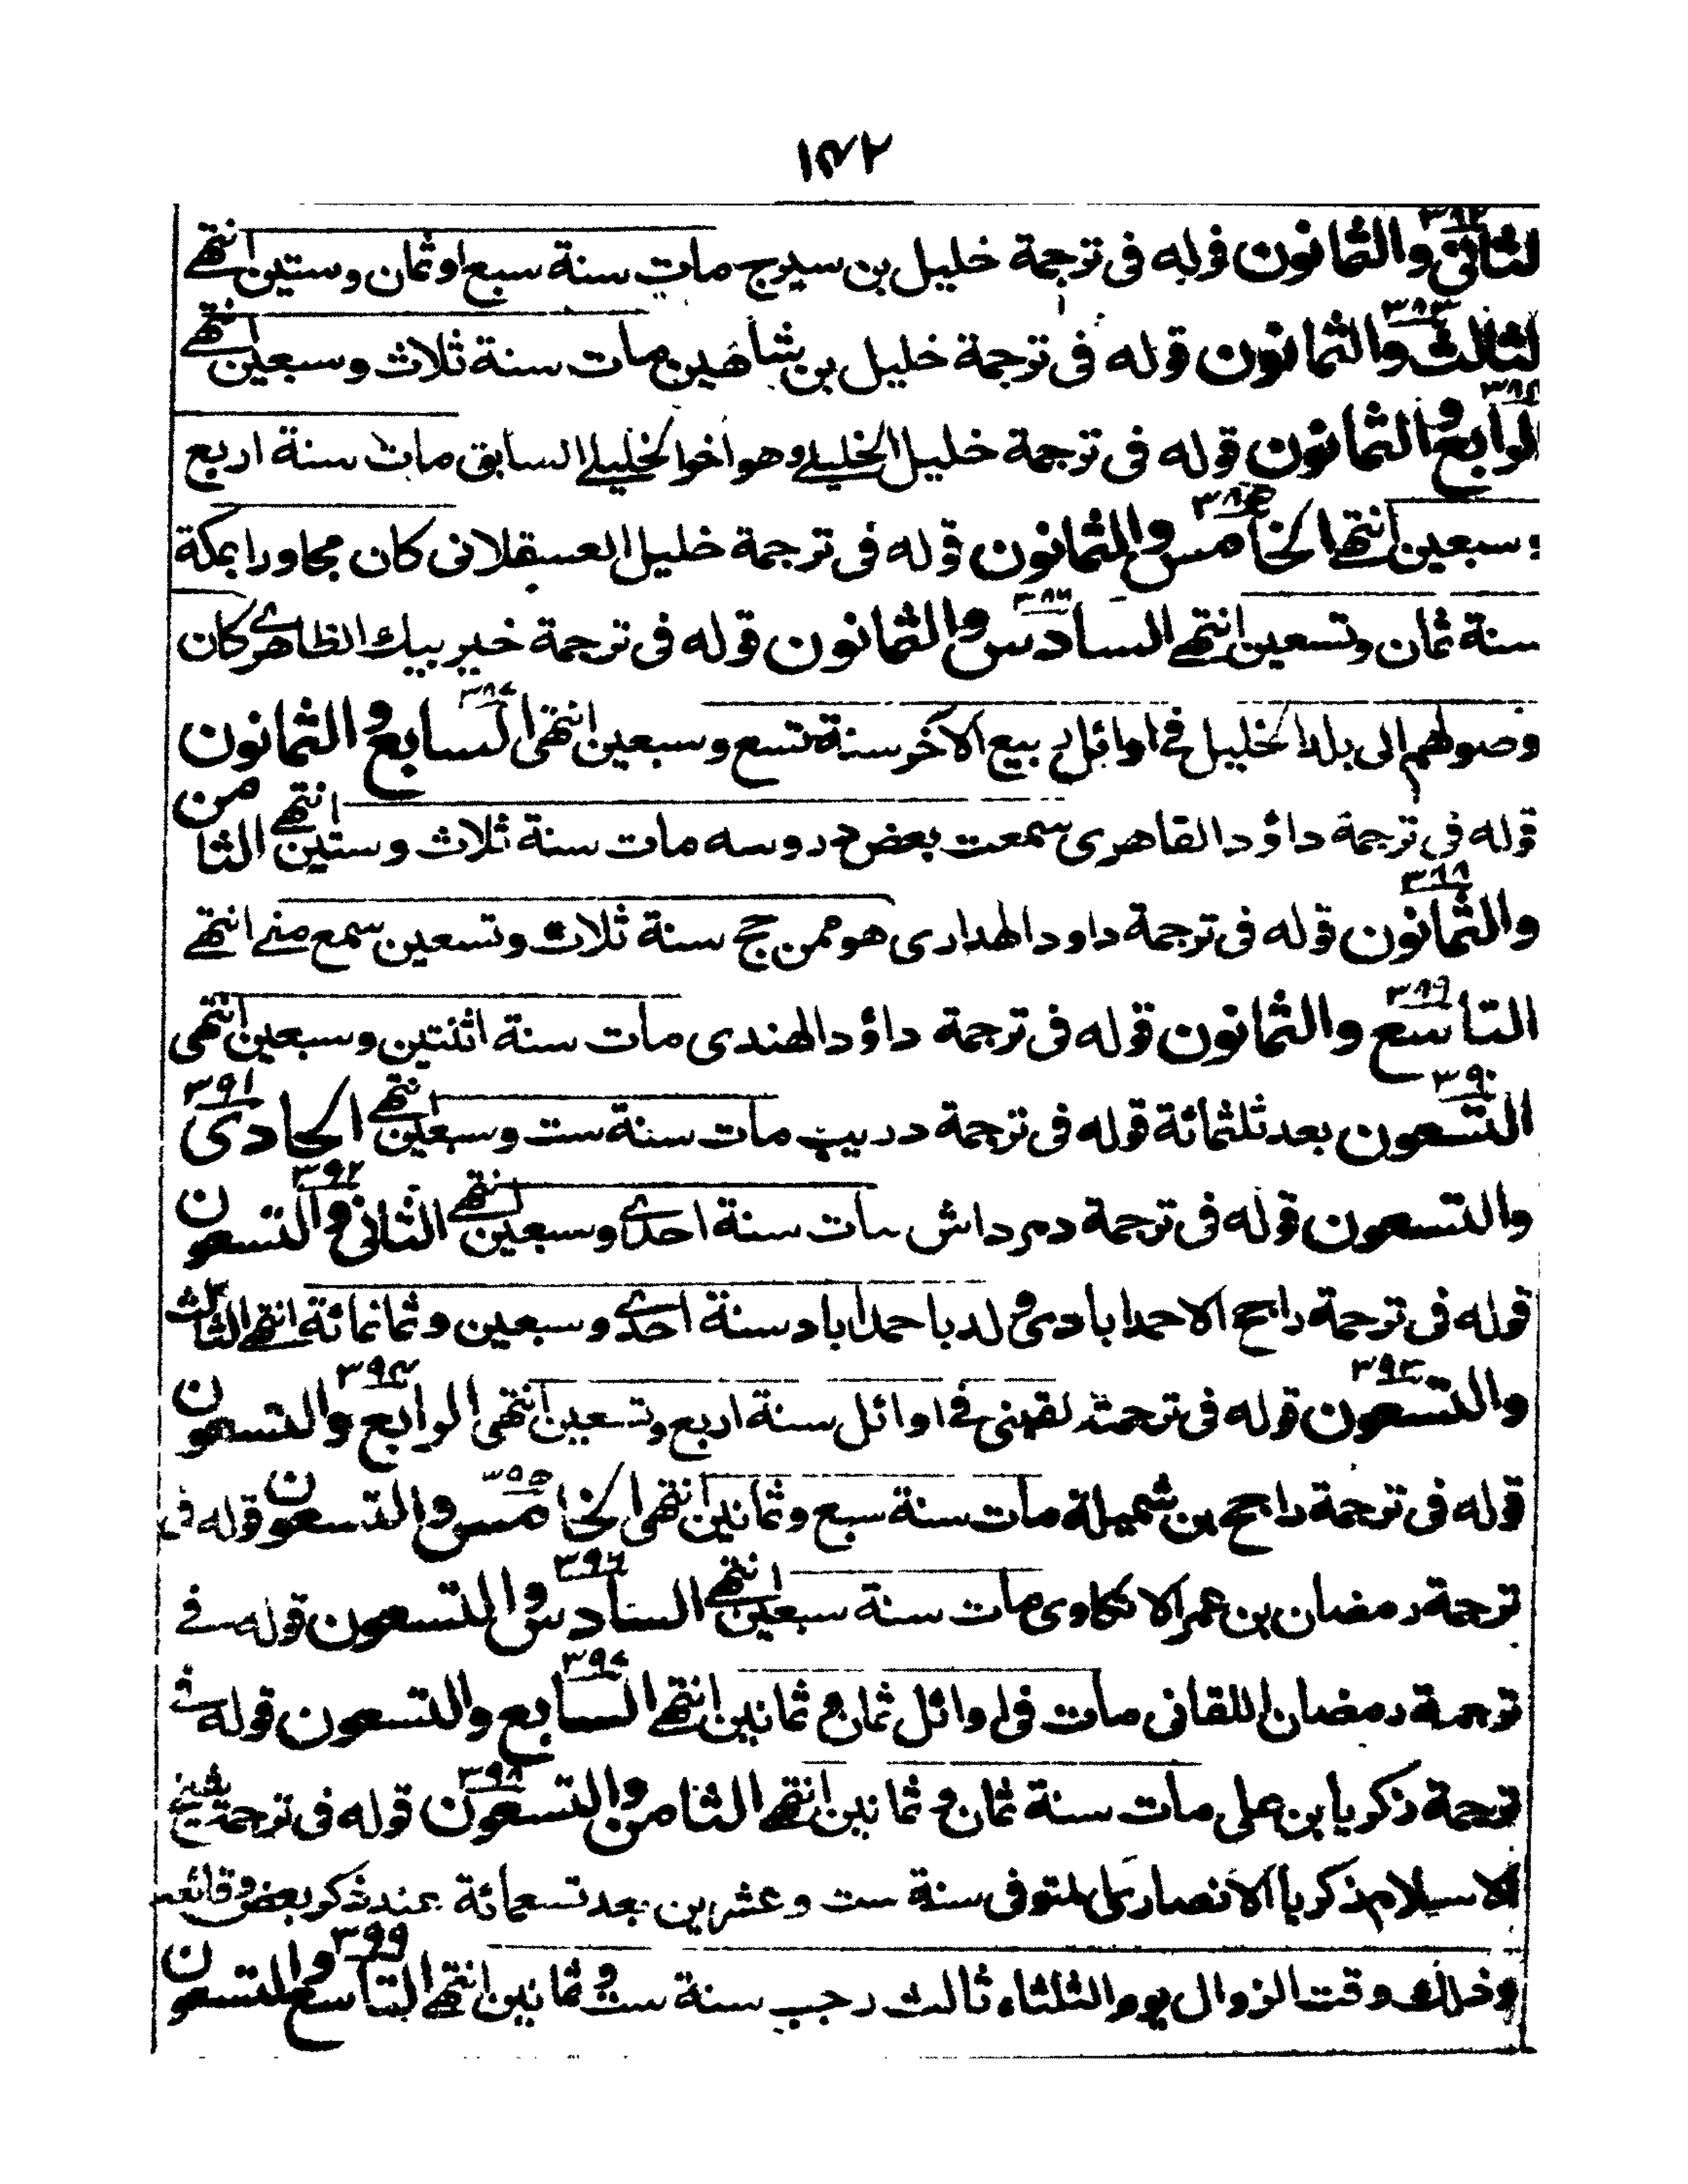 ١٤٢
٣٨٢
لثاني والثمانون قوله فى ترجمة خليل بن سيرج مات سنة سبع اوثمان وستين انتهے
٣٨٣
لثالث والثمانون قوله فى ترجمة خليل بن شاهين مات سنة ثلاث وسبعين انتهے
٣٨٤
لرابع والثمانون قوله فى ترجمة خليل الخليلے وهو اخو الخليلے السابق مات سنة اربع
٣٨٥
وسبعين انتهے الخامس والثمانون قوله فى ترجمة خليل العسقلانى كان مجاورا بمكة
٣٨٦
سنة ثمان وتسعين انتهے السادس والثمانون قوله فى ترجمة خيربيك الظاهرے كان
٣٨٧
وصولهم الى بلد الخليل فے اوائل ربيع الآخر سنة تسع وسبعين انتهى السابع والثمانون
قوله فى ترجمة داؤد القاهرى سمعت بعض دروسه مات سنة ثلاث وستين انتهے الثامن
٣٨٨
والثمانون قوله فى ترجمة داود الهدارى هو ممن حج سنة ثلاث وتسعين سمع منے انتهے
٣٨٩
التاسع والثمانون قوله فى ترجمة داؤد الهندى مات سنة اثنتين وسبعين انتهى
٣٩٠ ٣٩١
التسعون بعد ثلثمائة قوله فى ترجمة دريب مات سنة ست وسبعين انتهے الحادى
٣٩٢
والتسعون قوله فى ترجمة دمرداش مات سنة احدے وسبعين انتهے الثانى والتسعون
قوله فى ترجمة راجح الاحمدابادى ولد باحمدآباد سنة احدے وسبعين وثمانمائة انتهے الثالث
٣٩٣ ٣٩٤
والتسعون قوله فى ترجمته لقينى فے اوائل سنة اربع وتسعين انتهى الرابع والتسعون
٣٩٥
قوله فى ترجمة راجح بن شميلة مات سنة سبع وثمانين انتهى الخامس والتسعون قوله فى
٣٩٦
ترجمة رمضان بن عمر الاتكاوى مات سنة سبعين انتهے السادس والتسعون قوله فے
٣٩٧
ترجمة رمضان اللقانى مات فى اوائل ثمان وثمانين انتهے السابع والتسعون قوله فے
٣٩٨
ترجمة زكريا بن على مات سنة ثمان وثمانين انتهے الثامن والتسعون قوله فى ترجمة شيخ
الاسلام زكريا الانصارى المتوفى سنة ست وعشرين بعد تسعمائة عند ذكر بعض وقائعه
٣٩٩
وذلك وقت الزوال يوم الثلثاء ثالث رجب سنة ست وثمانين انتهے التاسع والتسعون